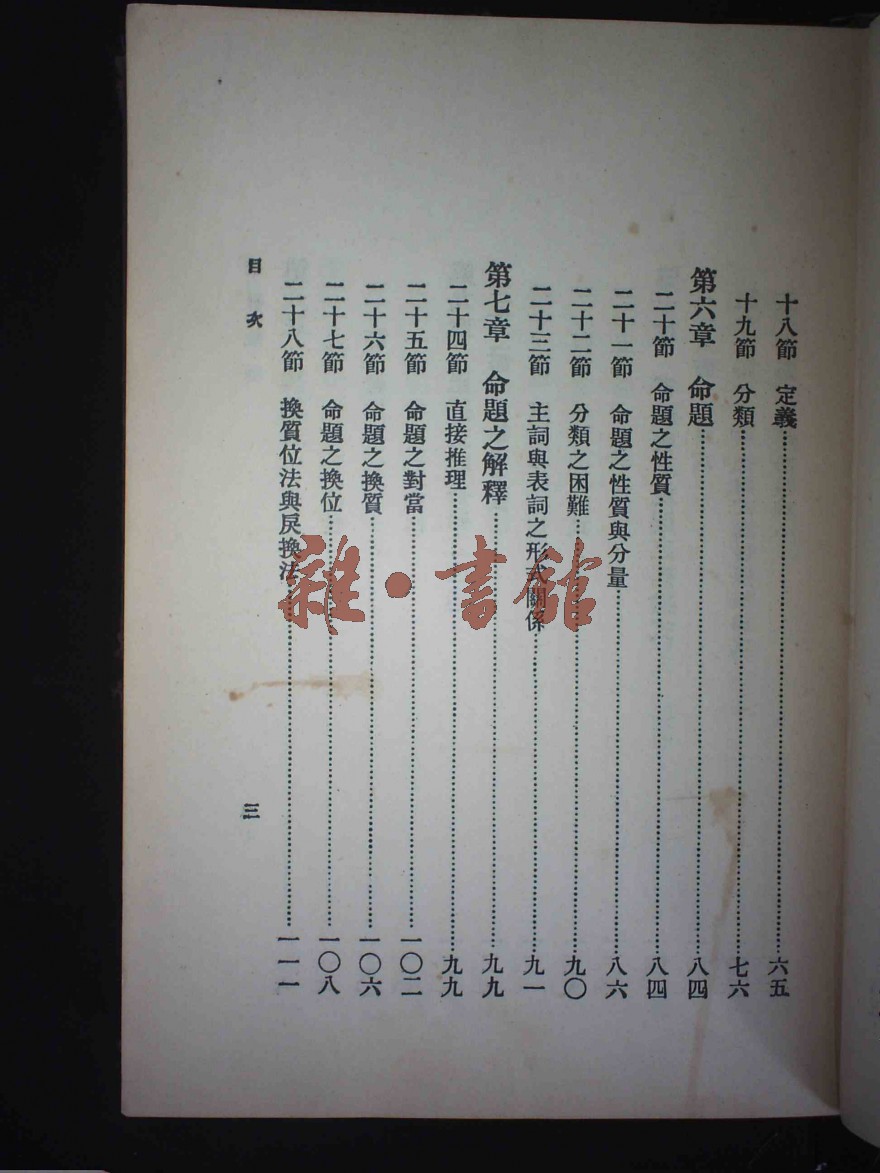 十八節　定義………六五
十九節　分類………七六
第六章　命題………八四
二十節　命題之性質………八四
二十一節　命題之性質與分量………八六
二十二節　分類之困難………九〇
二十三節　主詞與表詞之形式關係………九一
第七章　命題之解釋………九九
二十四節　直接推理………九九
二十五節　命題之對當………一〇二
二十六節　命題之換質………一〇六
二十七節　命題之換位………一〇八
二十八節　換質位法與戾換法………一一一
目次
三
雜·書館